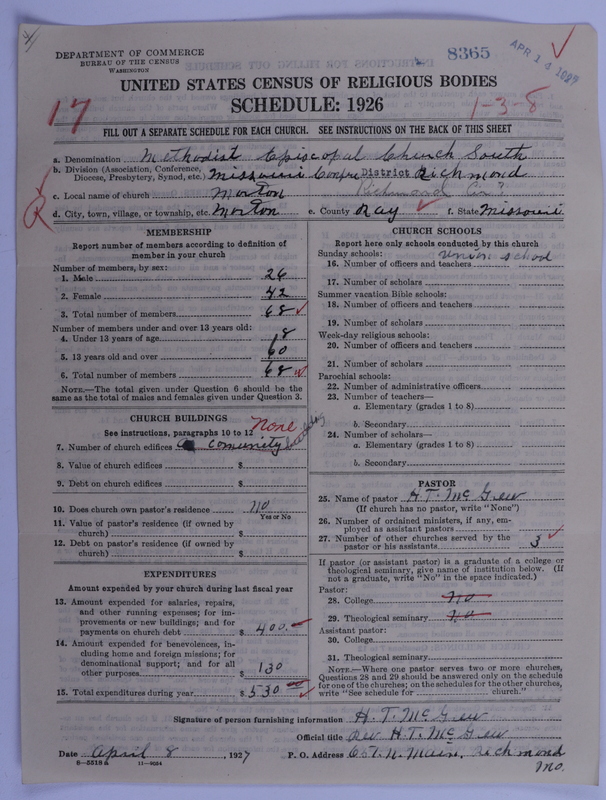 DEPARTMENT OF COMMERCE
BUREAU OF THE CENSUS
WASHINGTON
8365
APR 14 1927
UNITED STATES CENSUS OF RELIGIOUS BODIES
SCHEDULE: 1926
17
1-3-8
FILL OUT A SEPARATE SCHEDULE FOR EACH CHURCH. SEE INSTRUCTIONS ON THE BACK OF THIS SHEET
a. Denomination Methodist Episcopal Church South
b. Division (Association, Conference, Diocese, Presbytery, Synod, etc.) Missouri Confer District Richmond
c. Local name of church Morton Richmond Cir?
d. City, town, village, or township, etc. Morton e. County Ray f. State Missouri
MEMBERSHIP
Report number of members according to definition of member in your church
Number of members, by sex:
1. Male 26
2. Female 42
3. Total number of members 68
Number of members under and over 13 years old:
4. Under 13 years of age 8
5. 13 years old and over 60
6. Total number of members 68
NOTE.—The total given under Question 6 should be the same as the total of males and females given under Question 3.
CHURCH BUILDINGS
See instructions, paragraphs 10 to 12 None
7. Number of church edifices Comunity building
8. Value of church edifices $
9. Debt on church edifices $
10. Does church own pastor's residence no
Yes or No
11. Value of pastor's residence (if owned by church) $
12. Debt on pastor's residence (if owned by church) $
EXPENDITURES
Amount expended by your church during last fiscal year
13. Amount expended for salaries, repairs, and other running expenses; for improvements or new buildings; and for payments on church debt $ 400.
14. Amount expended for benevolences, including home and foreign missions; for denominational support; and for all other purposes $ 130
15. Total expenditures during year $ 530 00
CHURCH SCHOOLS
Report here only schools conducted by this church
Sunday schools: union school
16. Number of officers and teachers
17. Number of scholars
Summer vacation Bible schools:
18. Number of officers and teachers
19. Number of scholars
Week-day religious schools:
20. Number of officers and teachers
21. Number of scholars
Parochial schools:
22. Number of administrative officers
23. Number of teachers—
a. Elementary (grades 1 to 8)
b. Secondary
24. Number of scholars—
a. Elementary (grades 1 to 8)
b. Secondary
PASTOR
25. Name of pastor H. T. McGrew
(If church has no pastor, write "None")
26. Number of ordained ministers, if any, employed as assistant pastors
27. Number of other churches served by the pastor or his assistants 3
If pastor (or assistant pastor) is a graduate of a college or theological seminary, give name of institution below. (If not a graduate, write "No" in the space indicated.)
Pastor:
28. College No
29. Theological seminary No
Assistant pastor:
30. College
31. Theological seminary
NOTE.—Where one pastor serves two or more churches, Questions 28 and 29 should be answered only on the schedule for one of the churches; on the schedules for the other churches, write "See schedule for church."
Signature of person furnishing information H. T. McGrew
Official title Rev. H. T. McGrew
Date April 8, 1927 P. O. Address N. Main, Richmond Mo.
8—5518a 11—9024